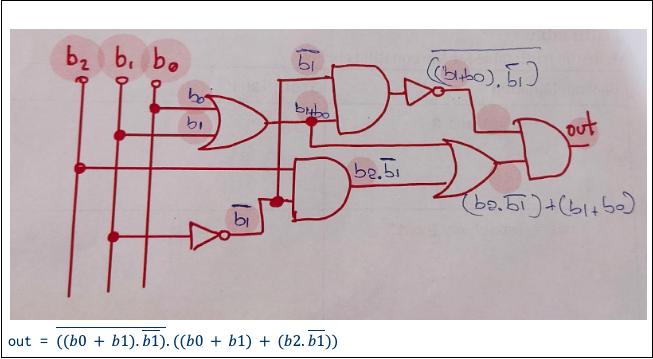 b₂ b₁ b₀
b̅1̅
((b1+b0).b̅1̅)̅
b0
b1
b1+b0
out
b2.b̅1̅
b̅1̅
(b2.b̅1̅)+(b1+b0)
out = ((b0 + b1).b̅1̅)̅.((b0 + b1) + (b2.b̅1̅))